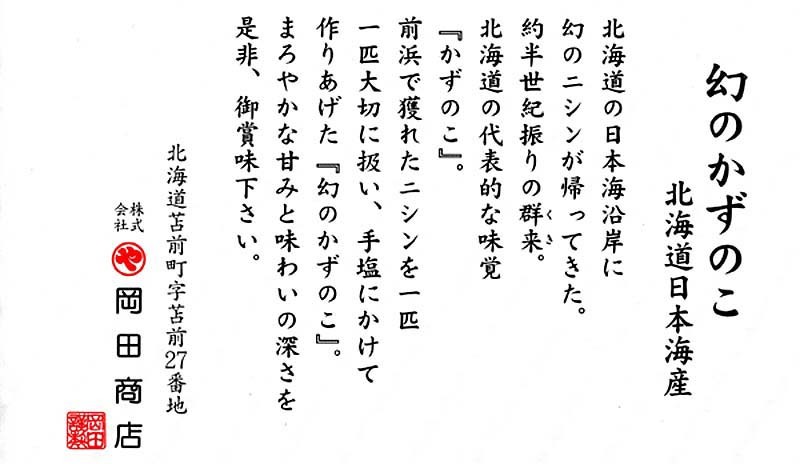 幻のかずのこ
北海道日本海産
北海道の日本海沿岸に
幻のニシンが帰ってきた。
約半世紀振りの群来。
くき
北海道の代表的な味覚
『かずのこ』。
前浜で獲れたニシンを一匹
一匹大切に扱い、手塩にかけて
作りあげた『幻のかずのこ』。
まろやかな甘みと味わいの深さを
是非、御賞味下さい。
北海道苫前町字苫前27番地
株式会社 や 岡田商店